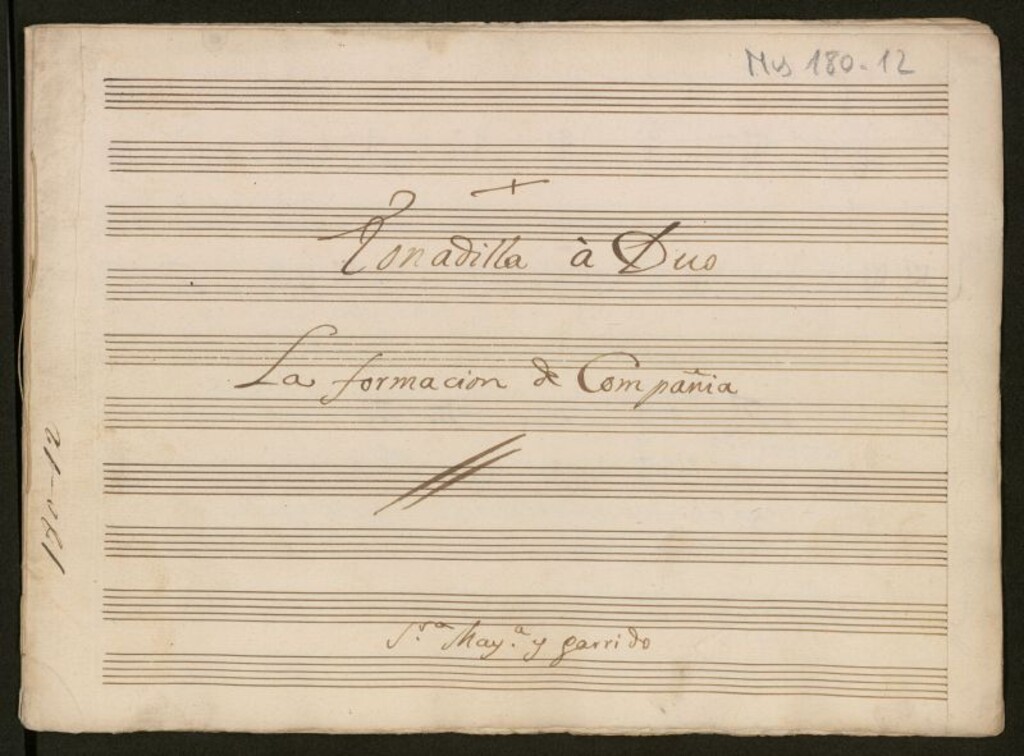 Mus 180-12
+
Tonadilla à Duo
La formacion de Compañia
S.ra May.a y garrido
180-12